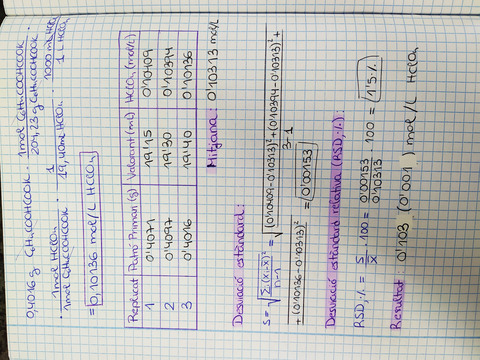 0,4016 g C₆H₄COOHCOOK · 1 mol C₆H₄COOHCOOK / 204,23 g C₆H₄COOHCOOK ·
· 1 mol HClO₄ / 1 mol C₆H₄COOHCOOK · 1 / 19,40 ml HClO₄ · 1000 ml HClO₄ / 1 L HClO₄
= 0,10136 mol/L HClO₄
Replicat Patró Primari (g) Valorant (ml) HClO₄ (mol/L)
1 0'4071 19'15 0'10409
2 0'4097 19'30 0'10394
3 0'4016 19'40 0'10136
Mitjana: 0'10313 mol/L
Desviació estàndard:
S = √ Σ(xᵢ-x̄)² / n-1 = √ (0'10409-0'10313)² + (0'10394-0'10313)² +
+ (0'10136-0'10313)² / 3-1 = 0'00153
Desviació estàndard relativa (RSD,%):
RSD,% = S/x̄ · 100 = 0'00153 / 0'10313 · 100 = 1'5%
Resultat 0'103 (0'001) mol/L HClO₄